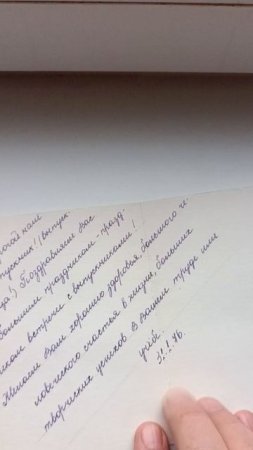 рогой наш
пускник! (выпуск-
ца!) Поздравляем Вас
большим праздником - празд-
ником встречи с выпускниками!
Желаем Вам хорошего здоровья, большого че-
ловеческого счастья в жизни, больших
творческих успехов в Вашем труде или
учебе.